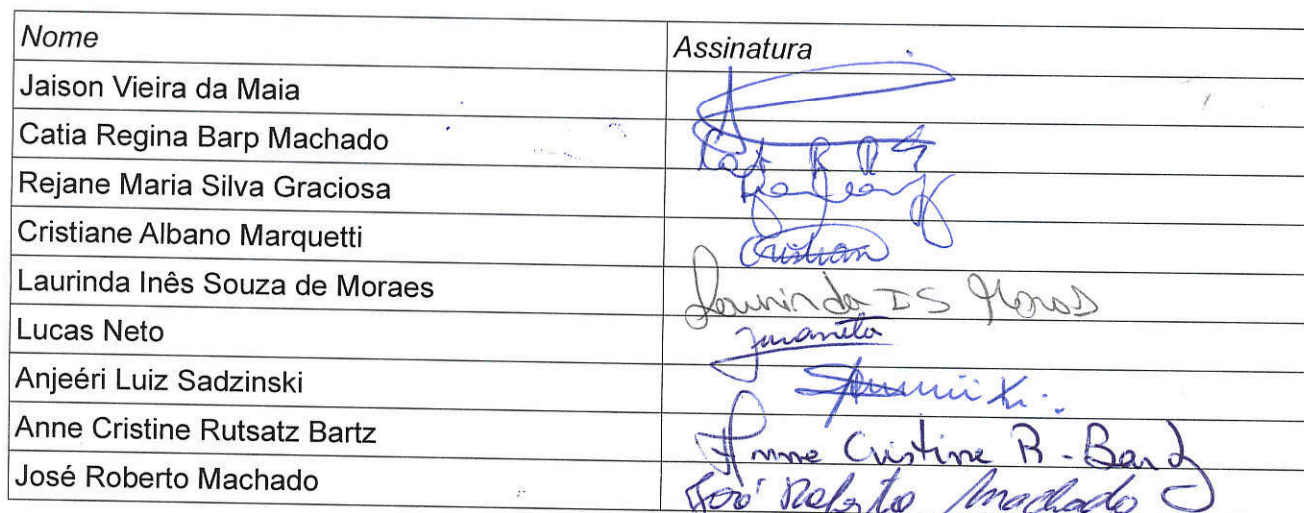 Nome Assinatura
Jaison Vieira da Maia
Catia Regina Barp Machado
Rejane Maria Silva Graciosa
Cristiane Albano Marquetti
Laurinda Inês Souza de Moraes Laurinda IS Moraes
Lucas Neto
Anjeéri Luiz Sadzinski
Anne Cristine Rutsatz Bartz Anne Cristine R. Bartz
José Roberto Machado José Roberto Machado